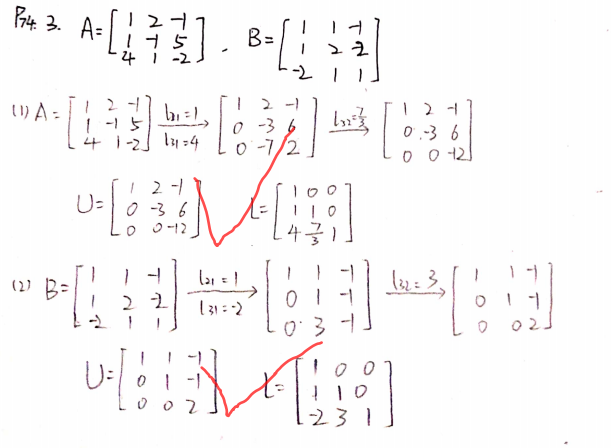 P74. 3. A=[1 2 -1; 1 -1 5; 4 1 -2]. B=[1 1 -1; 1 2 -2; -2 1 1]
(1) A=[1 2 -1; 1 -1 5; 4 1 -2] l21=1 l31=4 → [1 2 -1; 0 -3 6; 0 -7 2] l32=7/3 → [1 2 -1; 0 -3 6; 0 0 -12]
U=[1 2 -1; 0 -3 6; 0 0 -12] L=[1 0 0; 1 1 0; 4 7/3 1]
(2) B=[1 1 -1; 1 2 -2; -2 1 1] l21=1 l31=-2 → [1 1 -1; 0 1 -1; 0 3 -1] l32=3 → [1 1 -1; 0 1 -1; 0 0 2]
U=[1 1 -1; 0 1 -1; 0 0 2] L=[1 0 0; 1 1 0; -2 3 1]